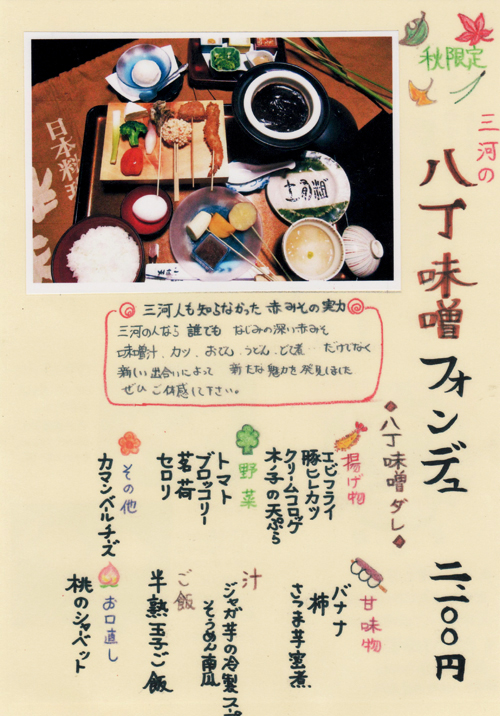 秋限定
三河の
八丁味噌フォンデュ 二、二〇〇円
日本料理
三河人も知らなかった 赤みその実力
三河の人なら 誰でも なじみの深い赤みそ
味噌汁、カツ、おでん、うどん、どて煮…だけじゃなく
新しい出合いによって 新たな魅力を発見しました
ぜひ ご体感して下さい。
八丁味噌ダレ
揚げ物
エビフライ
豚ヒレカツ
クリームコロッケ
木ノ子の天ぷら
野菜
トマト
ブロッコリー
茗荷
セロリ
その他
カマンベールチーズ
甘味物
バナナ
柿
さつま芋蜜煮
汁
ジャガ芋の冷製スープ
そうめん南瓜
ご飯
半熟玉子ご飯
お口直し
桃のシャーベット